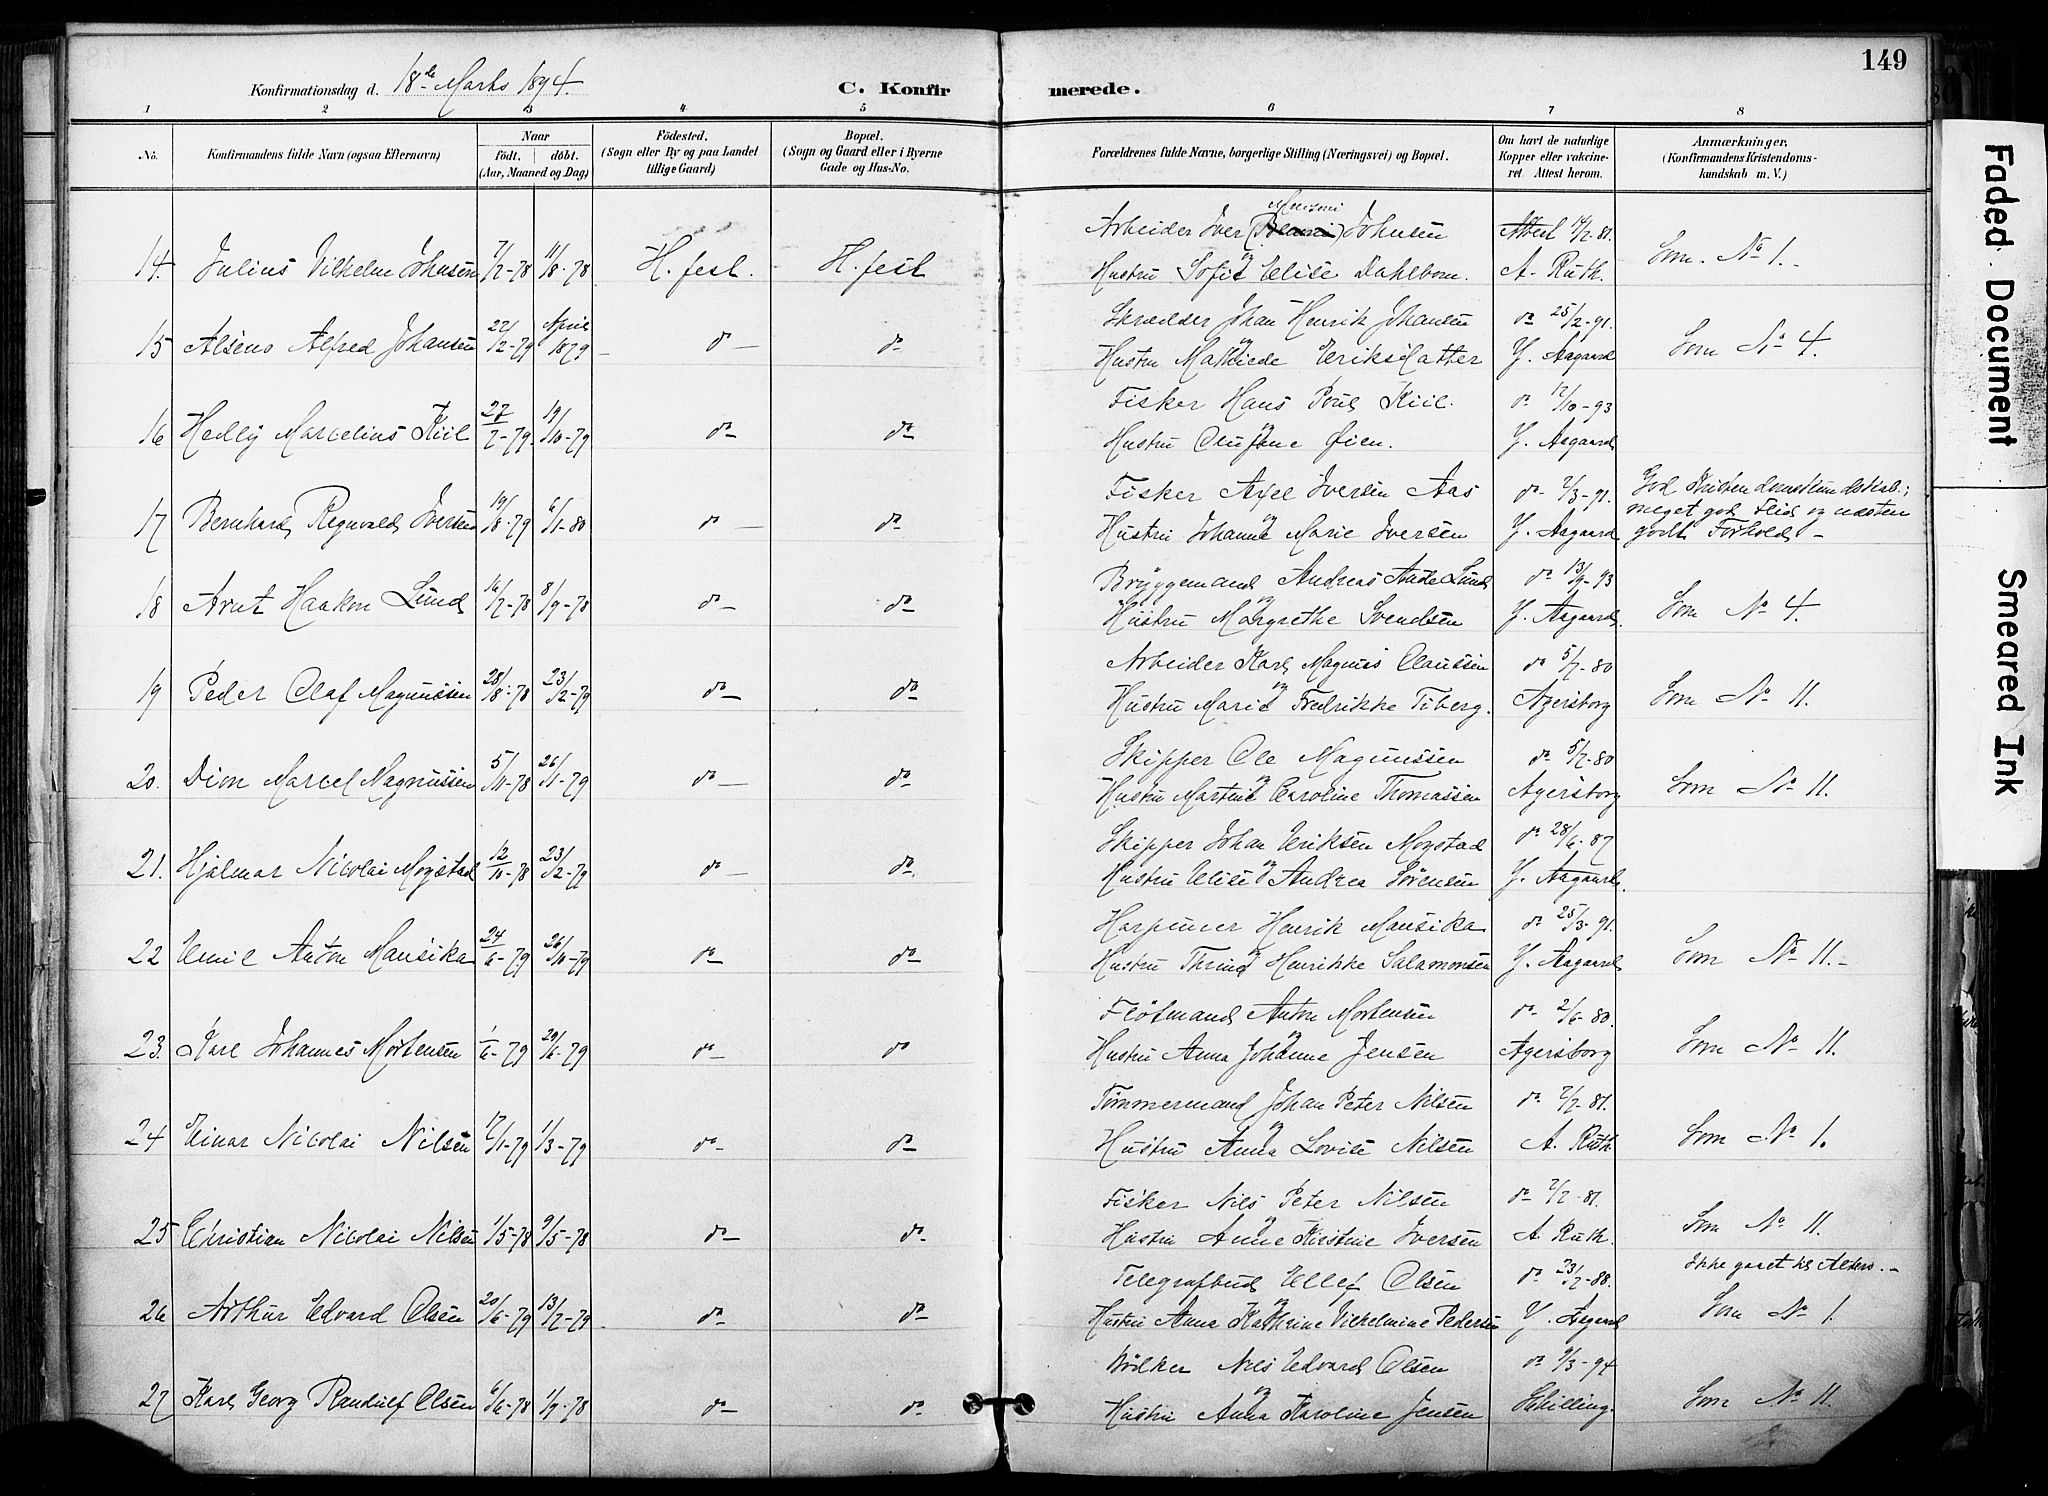 149
Konfirmationsdag d. 18de Marts 1894.
C. Konfirmerede.
1 2 3 4 5 6 7 8
No. Konfirmandens fulde Navn (ogsaa Efternavn) Naar født. døbt. (Aar, Maaned og Dag) Fødested. (Sogn eller By og paa Landet tillige Gaard) Bopæl. (Sogn og Gaard eller i Byerne Gade og Hus-No. Forældrenes fulde Navne, borgerlige Stilling (Næringsvei) og Bopæl. Om havt de naturlige Kopper eller vakcineret. Attest herom. Anmærkninger. (Konfirmandens Kristendomskundskab m. V.)
14. Julius Vilhelm Johnsen 7/2-78 11/8-78 H.fest. H.fest
Arbeider Iver Johnsen Attest 14/2-81.
og Hustru Sofie Elise Dahlbom. A. Ruth. Som No 1.-
15 Alsens Alfred Johansen 22/2-79 April 1879 do do
Skrædder Johan Henrik Johansen do 25/2-91.
og Hustru Mathilde Eriksdatter Y. Aagaard Som No 4.
16 Hedly Marcelius Kiil 27/7-79. 19/10-79 do do
Fisker Hans Poul Kiil. do 12/10-93
Hustru Oluffine Øien. Y. Aagaard
17 Bernhard Regnvald Iversen 19/8-79 6/1-80 do do
Fisker Axel Iversen Aas do 2/3-91.
og Hustru Johanne Marie Iversen Y. Aagaard
God Kristendomskundskab; meget god Flid og næsten godt Forhold -
18 Arnt Haakon Lund 16/7-78 8/9-78 do do
Bryggemand Andreas Lund do 13/9-93
og Hustru Margrethe Svendsen Y. Aagaard. Som No 4.
19 Peder Olaf Magnussen 28/8-78 23/2-79 do do
Arbeider Karl Magnus Claussen do 5/7-80
og Hustru Marie Fredrikke Tiberg. Agersborg Som No 11.
20. Dion Marcel Magnussen 5/11-78 26/1-79 do do
Skipper Ole Magnussen do 5/7-80
og Hustru Martine Caroline Thomassen Agersborg Som No 11.
21. Hjalmar Nicolai Mogstad 12/10-78 23/2-79 do do
Skipper Johan Eriksen Mogstad do 28/6-87
og Hustru Elise Andrea Sørensen Y. Aagaard.
22 Emil Anton Mansika 24/6-79 26/10-79 do do
Harpuner Henrik Mansika do 25/3-91.
og Hustru Thrine Henrikke Salamonsen Y. Aagaard Som No 11.-
23. Karl Johannes Mortensen 1/6-79 29/6-79 do do
Flötmand Anton Mortensen do 2/6-80.
og Hustru Anna Johanne Jensen Agersborg Som No 11.
24 Einar Nicolai Nilsen 17/1-79 1/3-79 do do
Tømmermand Johan Peter Nilsen do 2/2-81.
og Hustru Anna Lovise Nilsen A. Ruth Som No 1.
25 Christian Nicolai Nilsen 1/5-78 9/5-78 do do
Fisker Nils Peter Nilsen do 2/2-81.
og Hustru Anne Kirstine Iversen A. Ruth. Som No 11.
Ikke gaaet til Alters.-
26 Arthur Edvard Olsen 20/6-79 13/7-79 do do
Telegrafbud Ellef Olsen do 23/2-88.
og Hustru Anna Kathrine Vilhelmine Pedersen Y. Aagaard Som No 1.
27 Karl Georg Randulf Olsen 6/6-78 1/9-78 do do
Bödker Nils Edvard Olsen do 9/3-94
og Hustru Anna Karoline Jensen Schilling. Som No 11.
Faded Document
Smeared Ink